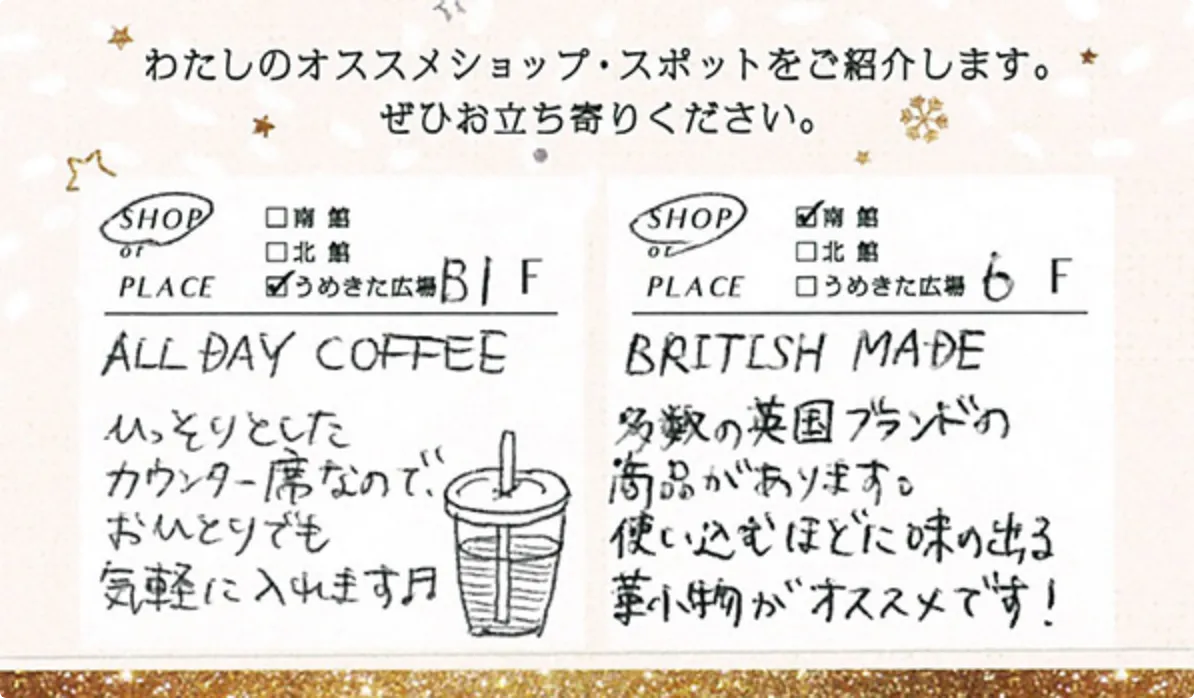 わたしのオススメショップ・スポットをご紹介します。
ぜひお立ち寄りください。
SHOP
or
PLACE
□南館
□北館
☑うめきた広場 B1F
ALL DAY COFFEE
ひっそりとした
カウンター席なので、
おひとりでも
気軽に入れます♬
SHOP
or
PLACE
☑南館
□北館
□うめきた広場 6F
BRITISH MADE
多数の英国ブランドの
商品があります。
使い込むほどに味の出る
革小物がオススメです!